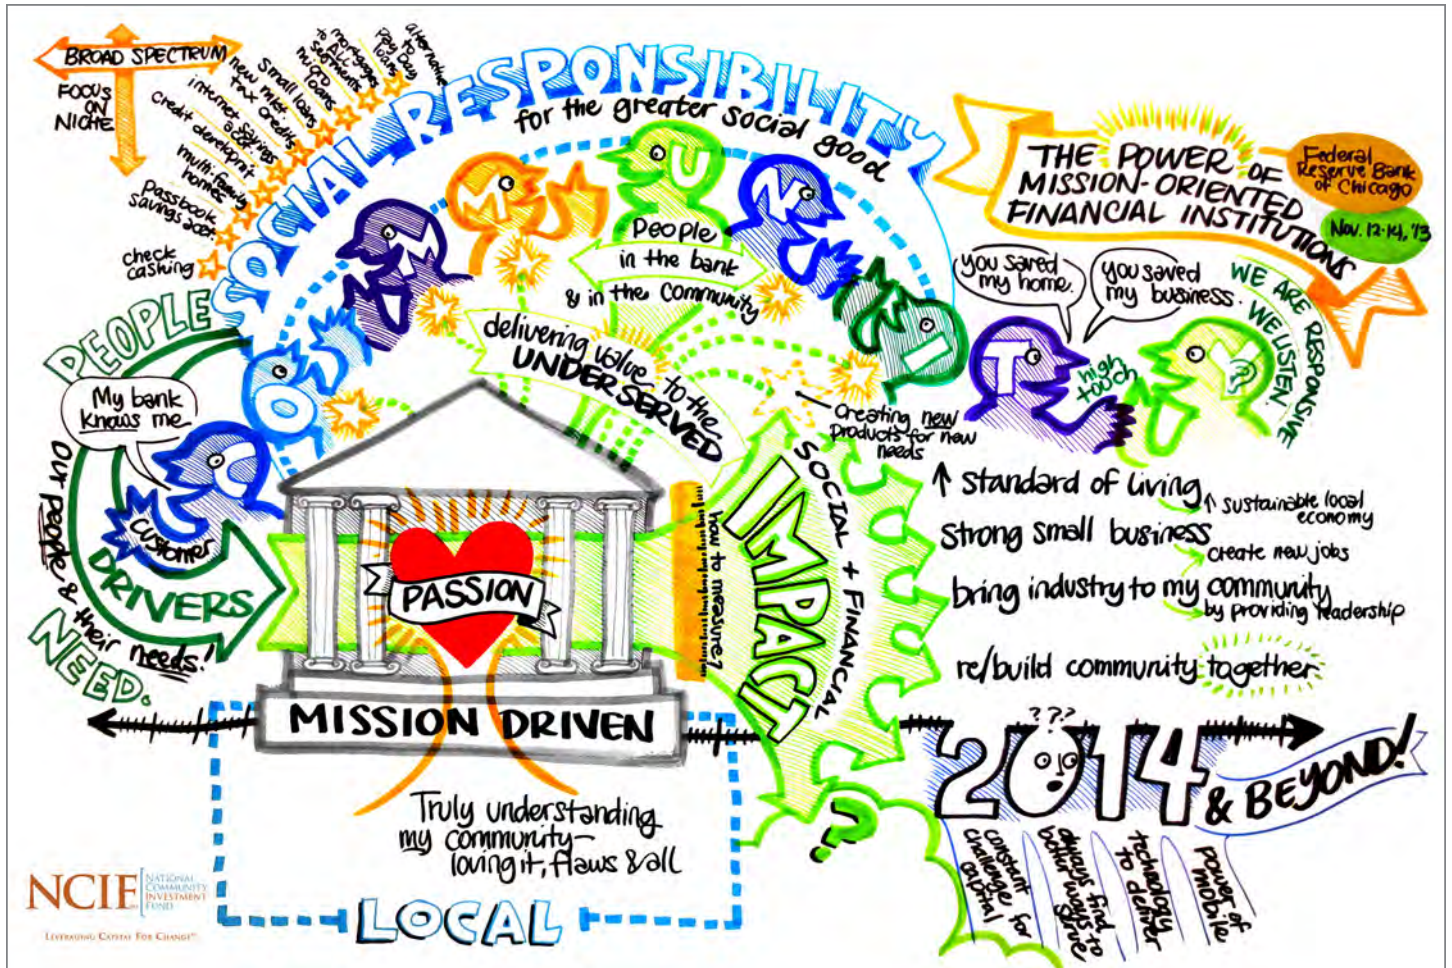 BROAD SPECTRUM
FOCUS
ON
NICHE
alternative
to
pay Day
loans
mortgages
to ALL
segments
micro
loans
small loans
new mkt.
tax credits
internet savings
acct
credit developm't
multi-family
homes
passbook
savings acct.
check
cashing
SOCIAL RESPONSIBILITY
for the greater social good
COMMUNITY
People
in the bank
& in the Community
delivering value to the
UNDERSERVED
THE POWER OF
MISSION-ORIENTED
FINANCIAL INSTITUTIONS
Federal
Reserve Bank
of Chicago
Nov. 12-14, '13
you saved
my home.
you saved
my business.
WE ARE RESPONSIVE
WE LISTEN.
high
touch
PEOPLE
My bank
knows me
Customer
DRIVERS
our people & their needs!
NEED.
PASSION
MISSION DRIVEN
how to measure?
IMPACT
SOCIAL + FINANCIAL
Creating new
products for new
needs
↑ standard of living
↑ sustainable local
economy
strong small business
create new jobs
bring industry to my community
by providing leadership
re/build community together
???
2014
& BEYOND!
constant
challenge for
capital
always find
better ways to
serve
technology
to deliver
power of
mobile
?
Truly understanding
my community—
loving it, flaws & all
LOCAL
NCIF
NATIONAL
COMMUNITY
INVESTMENT
FUND
LEVERAGING CAPITAL FOR CHANGE